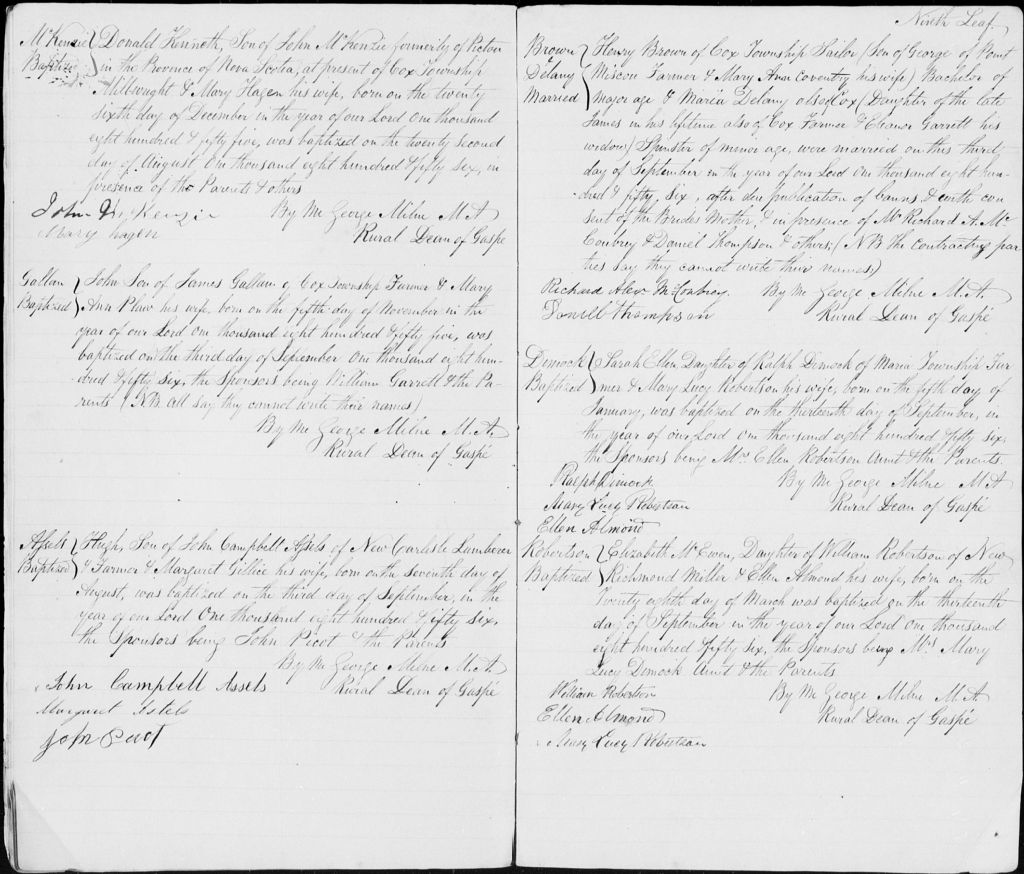 McKenzie Donald Kenneth, Son of John McKenzie formerly of Pictou
Baptized in the Provence of Nova Scotia, at present of Cox Township
Millwright & Mary Hagen his wife, born on the twenty
sixth day of December in the year of our Lord One thousand
eight hundred & fifty five, was baptized on the twenty second
day of August One thousand eight hundred & fifty six, in
presence of the Parents & others
John McKenzie By Me George Milne M.A
Mary Hagen Rural Dean of Gaspe
Gallan John Son of James Gallan of Cox Township Farmer & Mary
Baptized Ann his wife, born on the fifth day of November in the
year of our Lord One thousand eight hundred & fifty five, was
baptized on the third day of September One thousand eight hun-
-dred & fifty six, the Sponsors being William Garrett & the Pa-
rents (N.B. all say they cannot write their names)
By Me George Milne M.A.
Rural Dean of Gaspé
Assels Hugh, Son of John Campbell Assels of New Carlisle Lumberer
Baptized & Farmer & Margaret Gillice his wife, born on the seventh day of
August, was baptized on the third day of September, in the
year of our Lord One thousand eight hundred & fifty six,
the Sponsors being John Picot & the Parents
By Me George Milne M.A
John Campbell Assels Rural Dean of Gaspé
Margaret Assels
John Picot
Nineth Leaf
Brown Henry Brown of Cox Township Sailor (Son of George of Point
Delany Miscou Farmer & Mary Ann Coventry his wife) Bachelor of
Married major age & Maria Delany also of Cox (Daughter of the late
James in his lifetime also of Cox Farmer & Eleanor Garrett his
widow) Spinster of minor age, were married on this third
day of September in the year of our Lord One thousand eight hun-
-dred & fifty, six, after due publication of banns, & with con
sent of the Brides Mother, & in presence of Mr Richard A. Mc
Conbrey & Daniel Thompson & others, (N.B the contracting par
ties say they cannot write their names,)
Richard Alexr McConbrey By Me George Milne M.A.
Daniell Thompson Rural Dean of Gaspé
Dimock Sarah Ellen Daughter of Ralph Dimock of Maria Township Far
Baptized mer & Mary Lucy Robertson his wife, born on the fifth day of
January, was baptized on the thirteenth day of September, in
the year of our Lord One thousand eight hundred & fifty six,
the Sponsors being Mrs Ellen Robertson Aunt & the Parents.
Ralph Dimock By Me George Milne M.A
Mary Lucy Robertson Rural Dean of Gaspé
Ellen Almond
Robertson Elizabeth McEwen, Daughter of William Robertson of New
Baptized Richmond Miller & Ellen Almond his wife, born on the
Twenty eighth day of March was baptized on the thirteenth
day of September in the year of our Lord One thousand
eight hundred & fifty six, the Sponsors being Mrs Mary
Lucy Dimock Aunt & the Parents
William Robertson By Me George Milne M.A
Ellen Almond Rural Dean of Gaspé
Mary Lucy Robertson